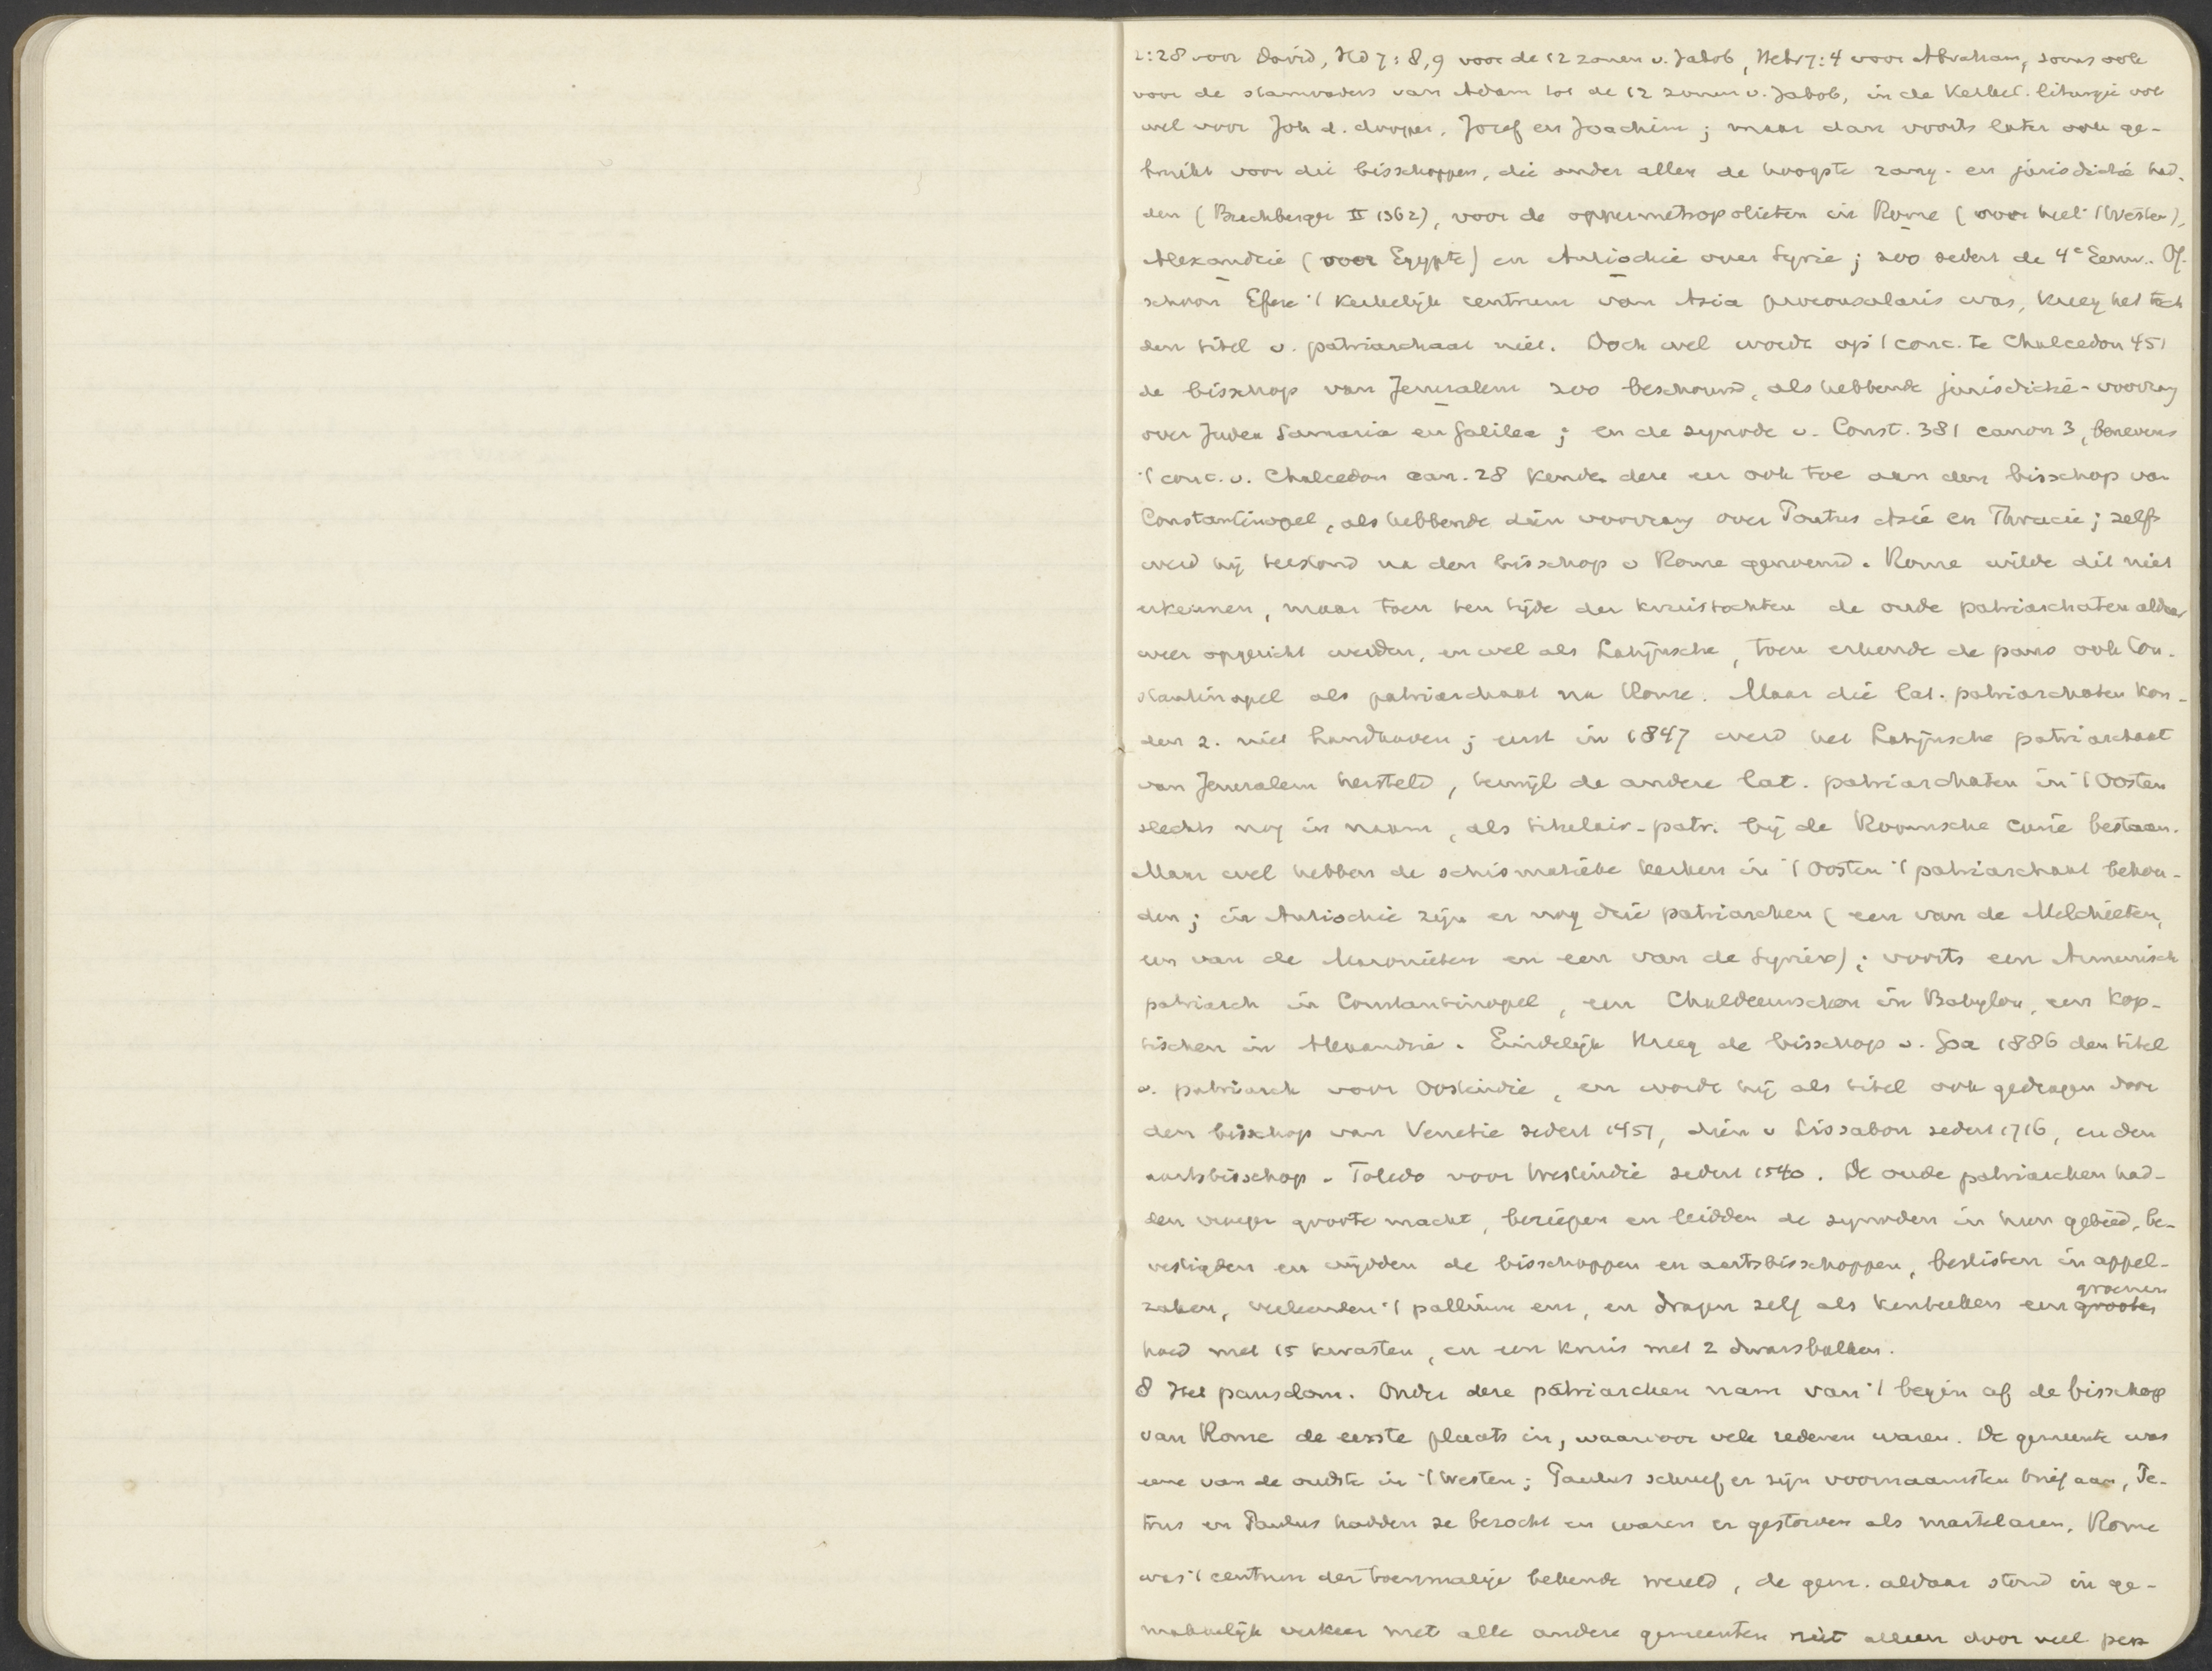 2:28 voor David, Hd 7:8,9 voor de 12 zonen v. Jakob, Hebr 7:4 voor Abraham, soms ook
voor de stamvaders van Adam tot de 12 zonen v. Jakob, in de Kerkel. liturgie ook
wel voor Joh d. dooper, Jozef en Joachim; maar dan voorts later ook ge-
bruikt voor die bisschoppen, die onder allen de hoogste rang- en jurisdictie had-
den (Buchberger II 1362), voor de oppermetropolieten in Rome (voor heel 't Westen),
Alexandrië (voor Egypte) en Antiochië over Syrie; zoo sedert de 4e Eeuw. Of-
schoon Efeze 't Kerkelijk centrum van Asia proconsularis was, kreeg het toch
den titel v. patriarchaat niet. Doch wel wordt op 't conc. te Chalcedon 451
de bisschop van Jeruzalem zoo beschouwd, als hebbende jurisdictie-voorrang
over Judea Samaria en Galilea; en de synode v. Const. 381 canon 3, benevens
't conc. v. Chalcedon can. 28 kenden deze eer ook toe aan den bisschop van
Constantinopel, als hebbende dien voorrang over Pontus Azië en Thracie; zelfs
werd hij terstond na den bisschop v Rome genoemd. Rome wilde dit niet
erkennen, maar toen ten tijde der kruistochten de oude patriarchaten aldaar
weer opgericht werden, en wel als Latijnsche, toen erkende de paus ook Con-
stantinopel als patriarchaat na Rome. Maar die lat. patriarchaten kon-
den z. niet handhaven; eerst in 1847 werd het Latijnsche patriarchaat
van Jeruzalem hersteld, terwijl de andere lat. patriarchaten in 't Oosten
slechts nog in naam, als titulair-patr. bij de Roomsche curie bestaan.
Maar wel hebben de schismatieke kerken in 't Oosten 't patriarchaat behou-
den; in Antiochië zijn er nog drie patriarchen (een van de Melchieten,
een van de Maronieten en een van de Syriers); voorts een Armenisch
patriarch in Constantinopel, een Chaldeeuwschen in Babylon, een Kop-
tischen in Alexandrië. Eindelijk kreeg de bisschop v. Goa 1886 den titel
v. patriarch voor Oostindië, en wordt hij als titel ook gedragen door
den bisschop van Venetie sedert 1451, dien v Lissabon sedert 1716, en den
aartsbisschop v Toledo voor Westindië sedert 1540. De oude patriarchen had-
den vroeger groote macht, beriepen en leidden de synoden in hun gebied, be-
vestigden en wijdden de bisschoppen en aartsbisschoppen, beslisten in appel-
zaken, verleenden 't pallium enz, en dragen zelf als kenteeken een grooten groenen
hoed met 15 kwasten, en een kruis met 2 dwarsbalken.
8 Het pausdom. Onder deze patriarchen nam van 't begin af de bisschop
van Rome de eerste plaats in, waarvoor vele redenen waren. De gemeente was
eene van de oudste in 't Westen; Paulus schreef er zijn voornaamsten brief aan, Pe-
trus en Paulus hadden ze bezocht en waren er gestorven als martelaren. Rome
was 't centrum der toenmalige bekende wereld, de gem. aldaar stond in ge-
makkelijk verkeer met alle andere gemeenten niet alleen door veel per